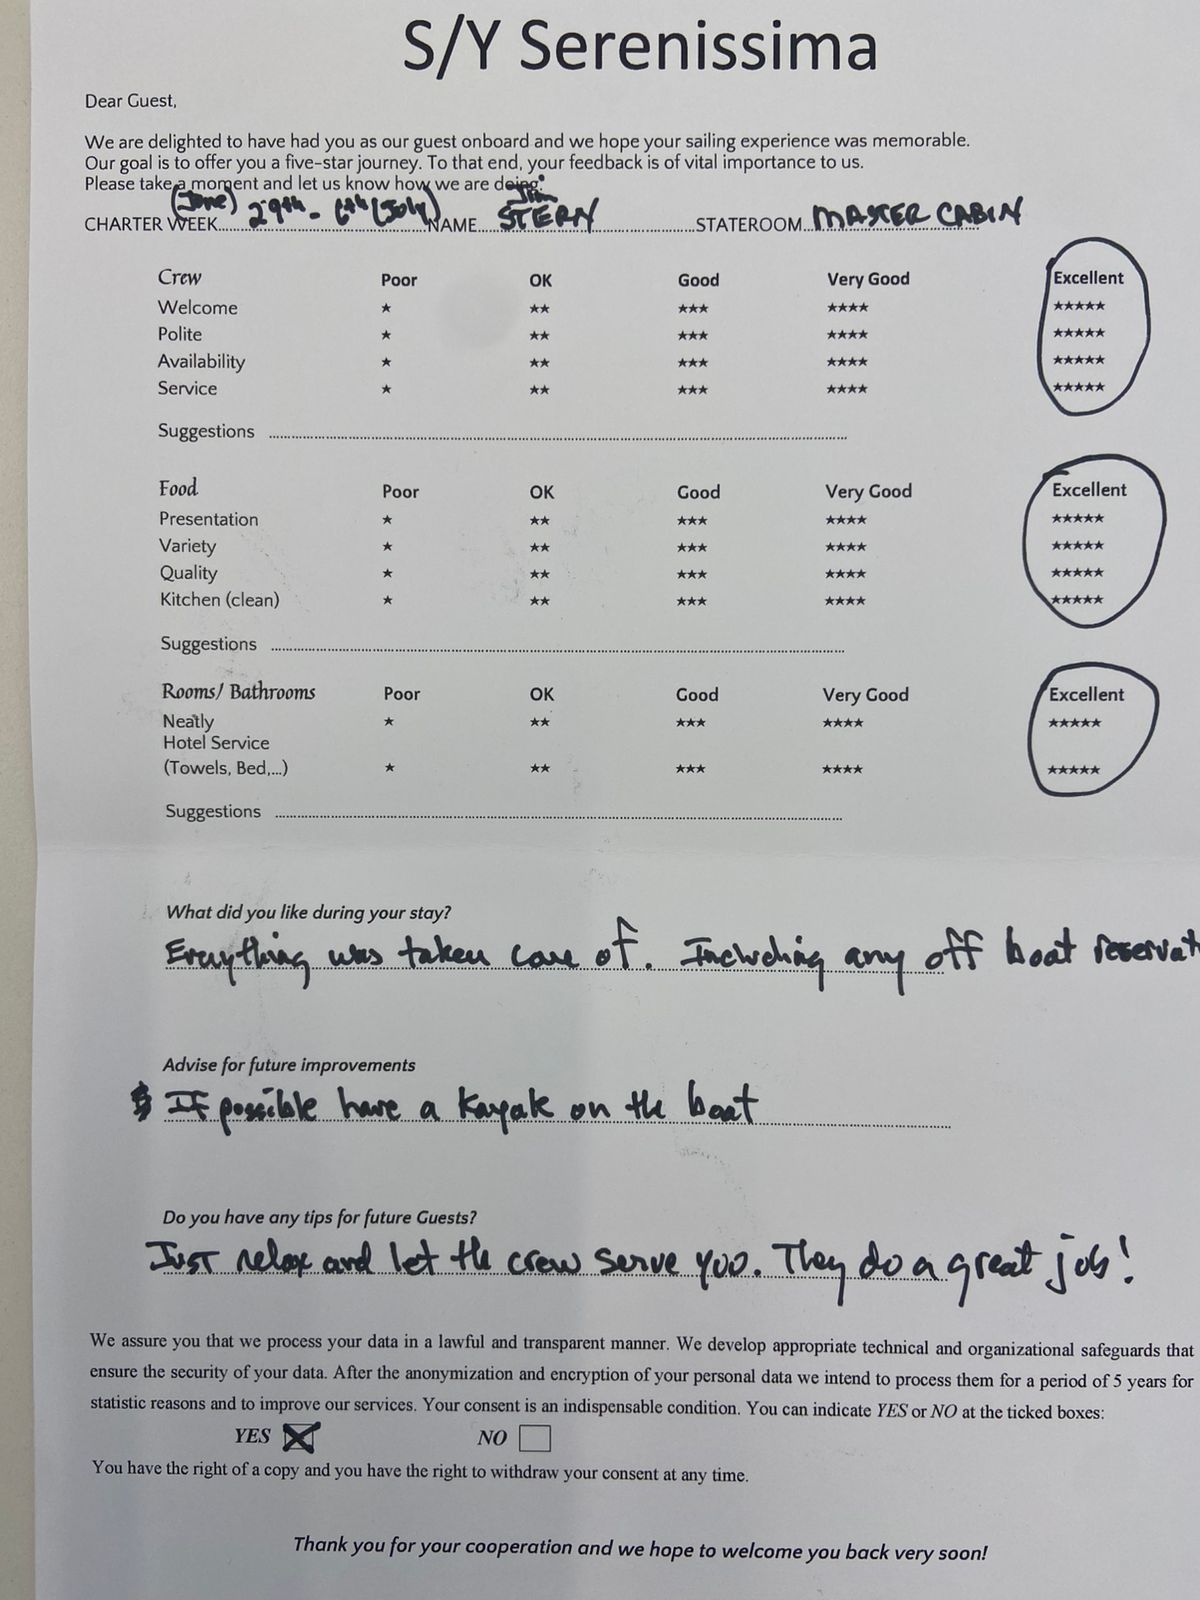 S/Y Serenissima
Dear Guest,
We are delighted to have had you as our guest onboard and we hope your sailing experience was memorable.
Our goal is to offer you a five-star journey. To that end, your feedback is of vital importance to us.
Please take a moment and let us know how we are doing.
CHARTER WEEK (June) 29th - 6th (July) NAME Jim STERN STATEROOM MASTER CABIN
Crew Poor OK Good Very Good Excellent
Welcome ★ ★★ ★★★ ★★★★ ★★★★★
Polite ★ ★★ ★★★ ★★★★ ★★★★★
Availability ★ ★★ ★★★ ★★★★ ★★★★★
Service ★ ★★ ★★★ ★★★★ ★★★★★
Suggestions
Food Poor OK Good Very Good Excellent
Presentation ★ ★★ ★★★ ★★★★ ★★★★★
Variety ★ ★★ ★★★ ★★★★ ★★★★★
Quality ★ ★★ ★★★ ★★★★ ★★★★★
Kitchen (clean) ★ ★★ ★★★ ★★★★ ★★★★★
Suggestions
Rooms/ Bathrooms Poor OK Good Very Good Excellent
Neatly ★ ★★ ★★★ ★★★★ ★★★★★
Hotel Service
(Towels, Bed,...) ★ ★★ ★★★ ★★★★ ★★★★★
Suggestions
What did you like during your stay?
Everything was taken care of. Including any off boat reservat
Advise for future improvements
If possible have a kayak on the boat
Do you have any tips for future Guests?
Just relax and let the crew serve you. They do a great job!
We assure you that we process your data in a lawful and transparent manner. We develop appropriate technical and organizational safeguards that
ensure the security of your data. After the anonymization and encryption of your personal data we intend to process them for a period of 5 years for
statistic reasons and to improve our services. Your consent is an indispensable condition. You can indicate YES or NO at the ticked boxes:
YES NO
You have the right of a copy and you have the right to withdraw your consent at any time.
Thank you for your cooperation and we hope to welcome you back very soon!